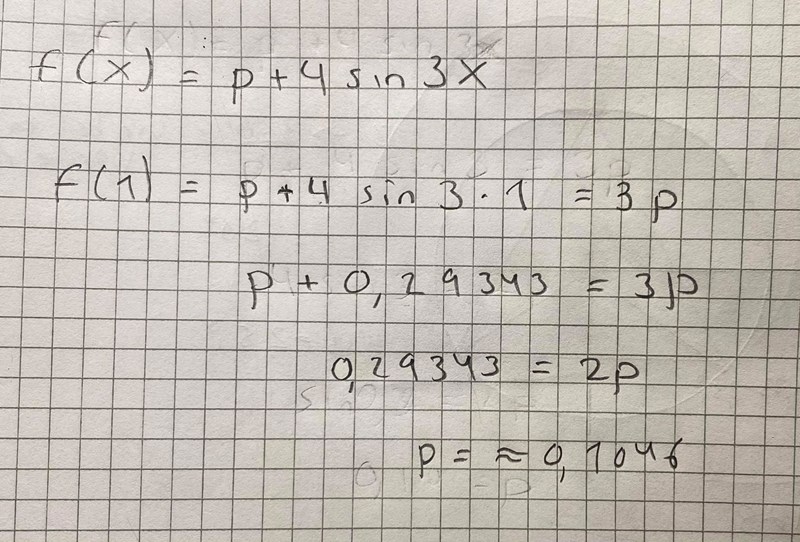 f(x) = p + 4 sin 3x
f(1) = p + 4 sin 3 · 1 = 3p
p + 0,29343 = 3p
0,29343 = 2p
p = ≈ 0,1046